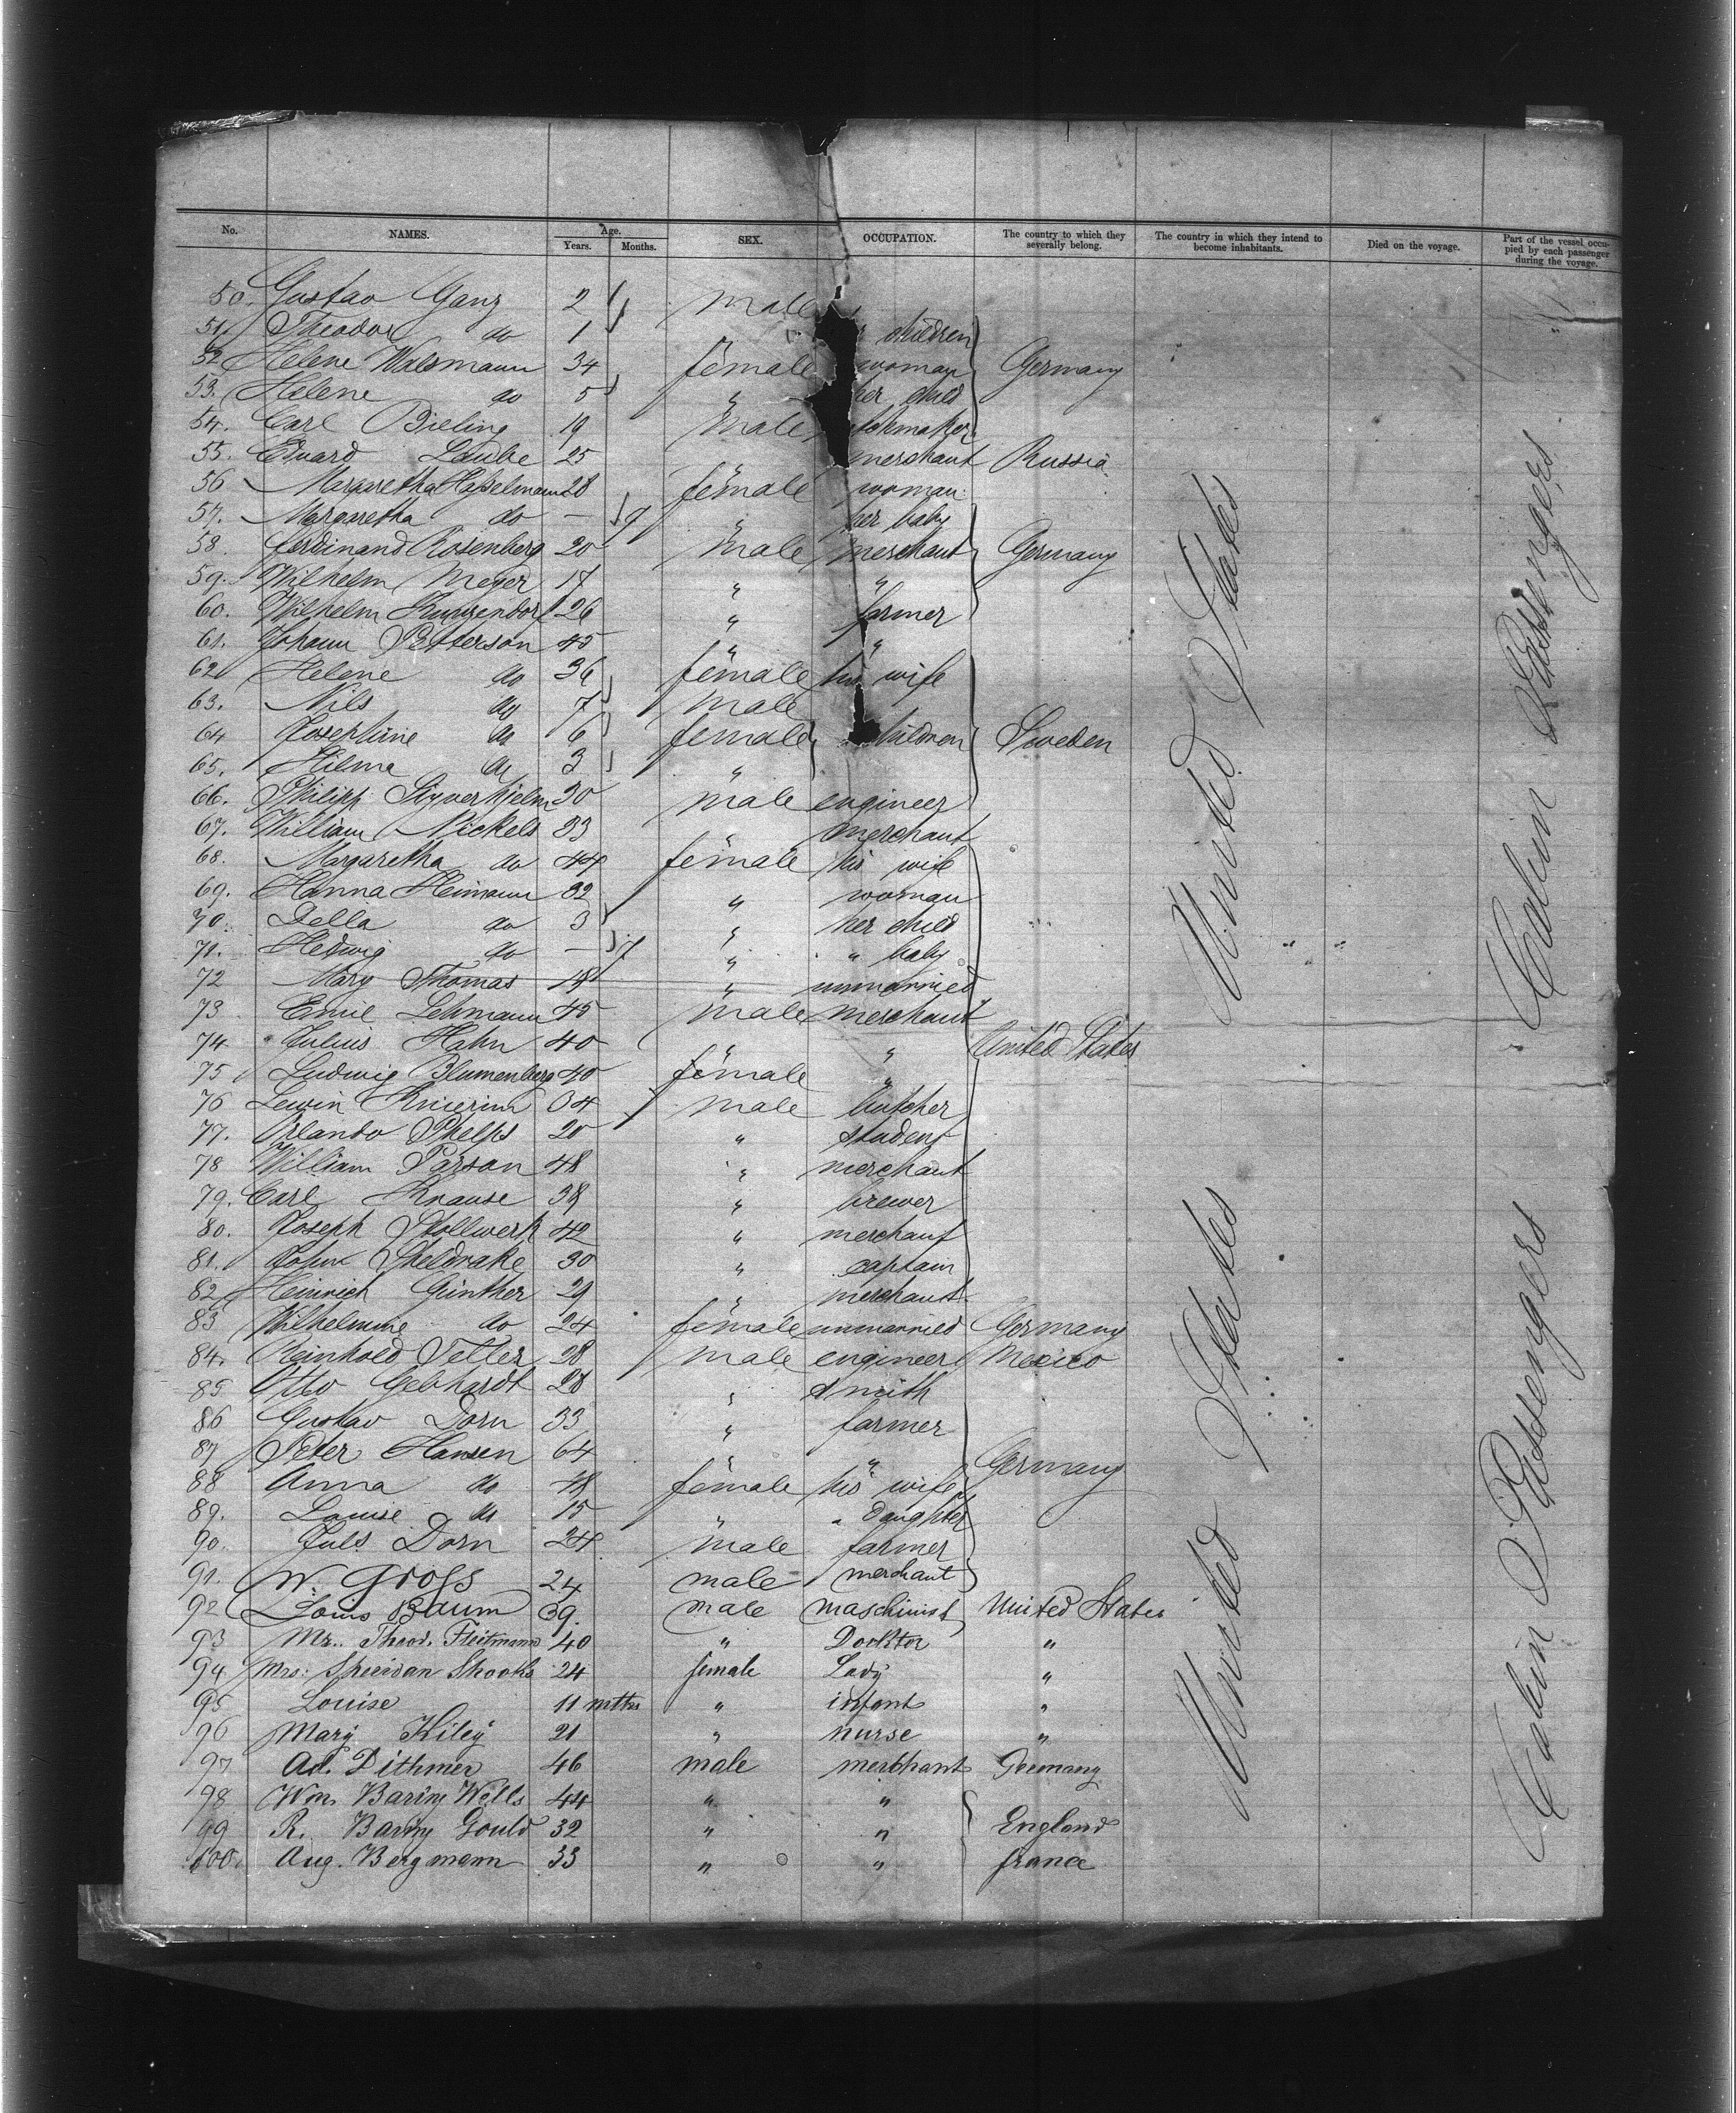 No. NAMES. Age. Years. Months. SEX. OCCUPATION. The country to which they severally belong. The country in which they intend to become inhabitants. Died on the voyage. Part of the vessel occupied by each passenger during the voyage.
50. Gustav Ganz 2 male
51. Theodor do 1 " children
52. Helene Walsmann 34 female woman Germany
53. Helene do 5 " her child
54. Carl Bieling 19 male
55. Eduard Laube 25 merchant Russia
56 Margaretha Haßelmann 28 female woman
57. Margaretha do — 9 " her baby
58. Ferdinand Rosenberg 20 male merchant Germany
59. Wilhelm Meyer 17 " "
60. Wilhelm Kunzendorf 26 " farmer
61. Johann Petterson 45 " "
62 Helene do 36 female his wife
63. Nils do 7 male
64 Josephine do 6 female children Sweden
65. Hilma do 3 "
66. Philipp 30 male engineer
67. William Nickels 53 merchant
68. Margaretha do 44 female his wife
69. Hanna Heimann 32 " woman
70. Della do 3 " her child
71. Hedwig do — 7 " " baby
72 Mary Thomas 18 " unmarried
73 Emil Lehmann 45 male merchant
74 Julius Hahn 40 " " United States
75 Ludwig Blumenberg 40 female "
76 Lewin Knierim 34 male butcher
77. Orlando Phelps 20 " student
78 William Parson 48 " merchant
79. Carl Krause 38 " brewer
80. Joseph Stollwerk 42 " merchant
81. John Sheldrake 30 " captain
82 Heinrich Günther 29 " merchant
83 Wilhelmine do 24 female unmarried Germany
84. Reinhold Tetter 28 male engineer Mexico
85 Otto Gebhardt 28 " smith
86 Gustav Dorn 33 " farmer
87 Peter Hansen 64 " " Germany
88 Anna do 48 female his wife
89. Louise do 15 " " daughter
90. Juls Dorn 24 male farmer
91. W. Gross 24 male merchant
92 Louis Baum 39. male maschinist United States
93 Mr. Theod. Fleitmann 40 " Docktor "
94 Mrs. Sheridan Shooks 24 female Lady "
95 Louise 11 mths " infant "
96 Mary Kiley 21 " nurse "
97 Ad. Dithmer 46 male merchant Germany
98 Wm. Baring Wells 44 " "
99 R. Baring Gould 32 " " England
100. Aug. Bergmann 33 " " france
United States
United States
Cabin Passengers
Cabin Passengers